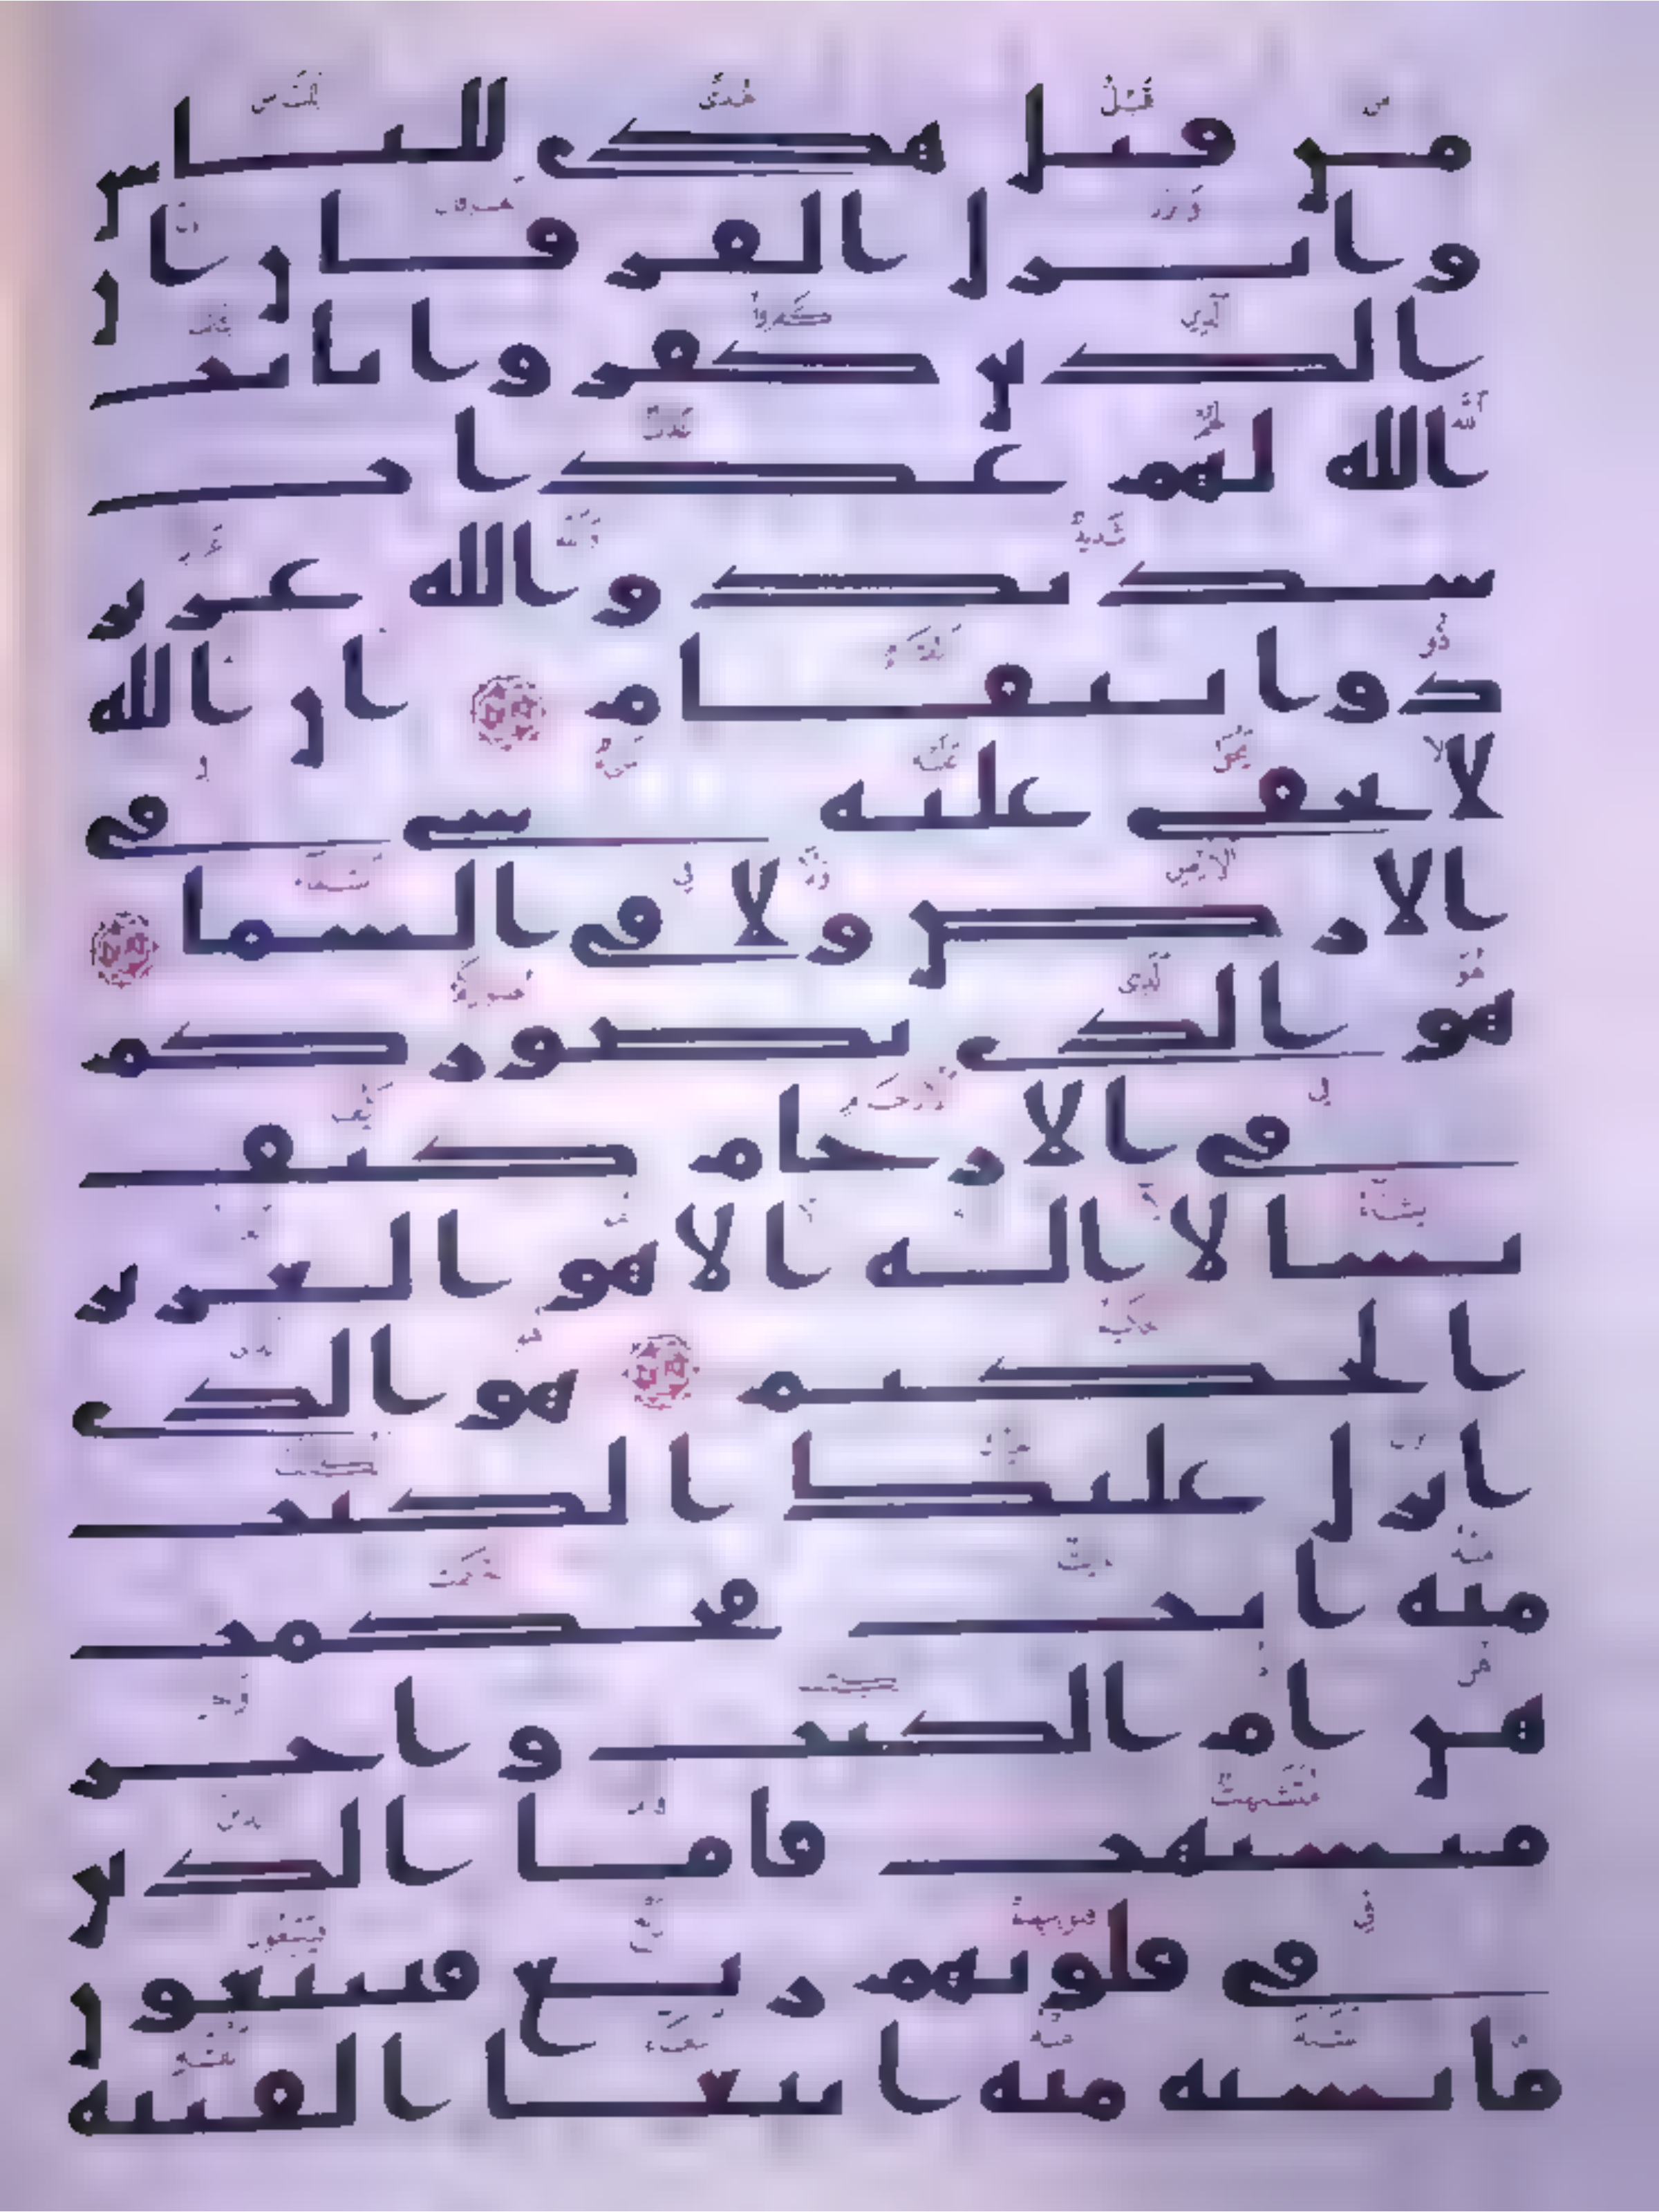 من قبل هدى للناس
وانزل الفرقان ان
الذين كفروا بايت
الله لهم عذاب
شديد والله عزيز
ذو انتقام ان الله
لا يخفى عليه شي في
الارض ولا في السما
هو الذي يصوركم
في الارحام كيف
يشا لا اله الا هو العزيز
الحكيم هو الذي
انزل عليك الكتب
منه ايت محكمت
هن ام الكتب واخر
متشبهت فاما الذين
في قلوبهم زيغ فيتبعون
ما تشبه منه ابتغا الفتنة